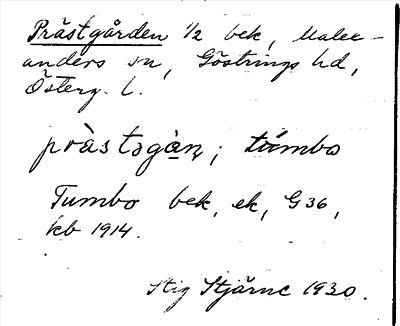 Prästgården 1/2 bek, Malex-
anders sn, Göstrings hd,
Österg. l.
pràstəgàṇ; túmbo
Tumbo bek, ek, G36,
kb 1914.
Stig Stjärne 1930.